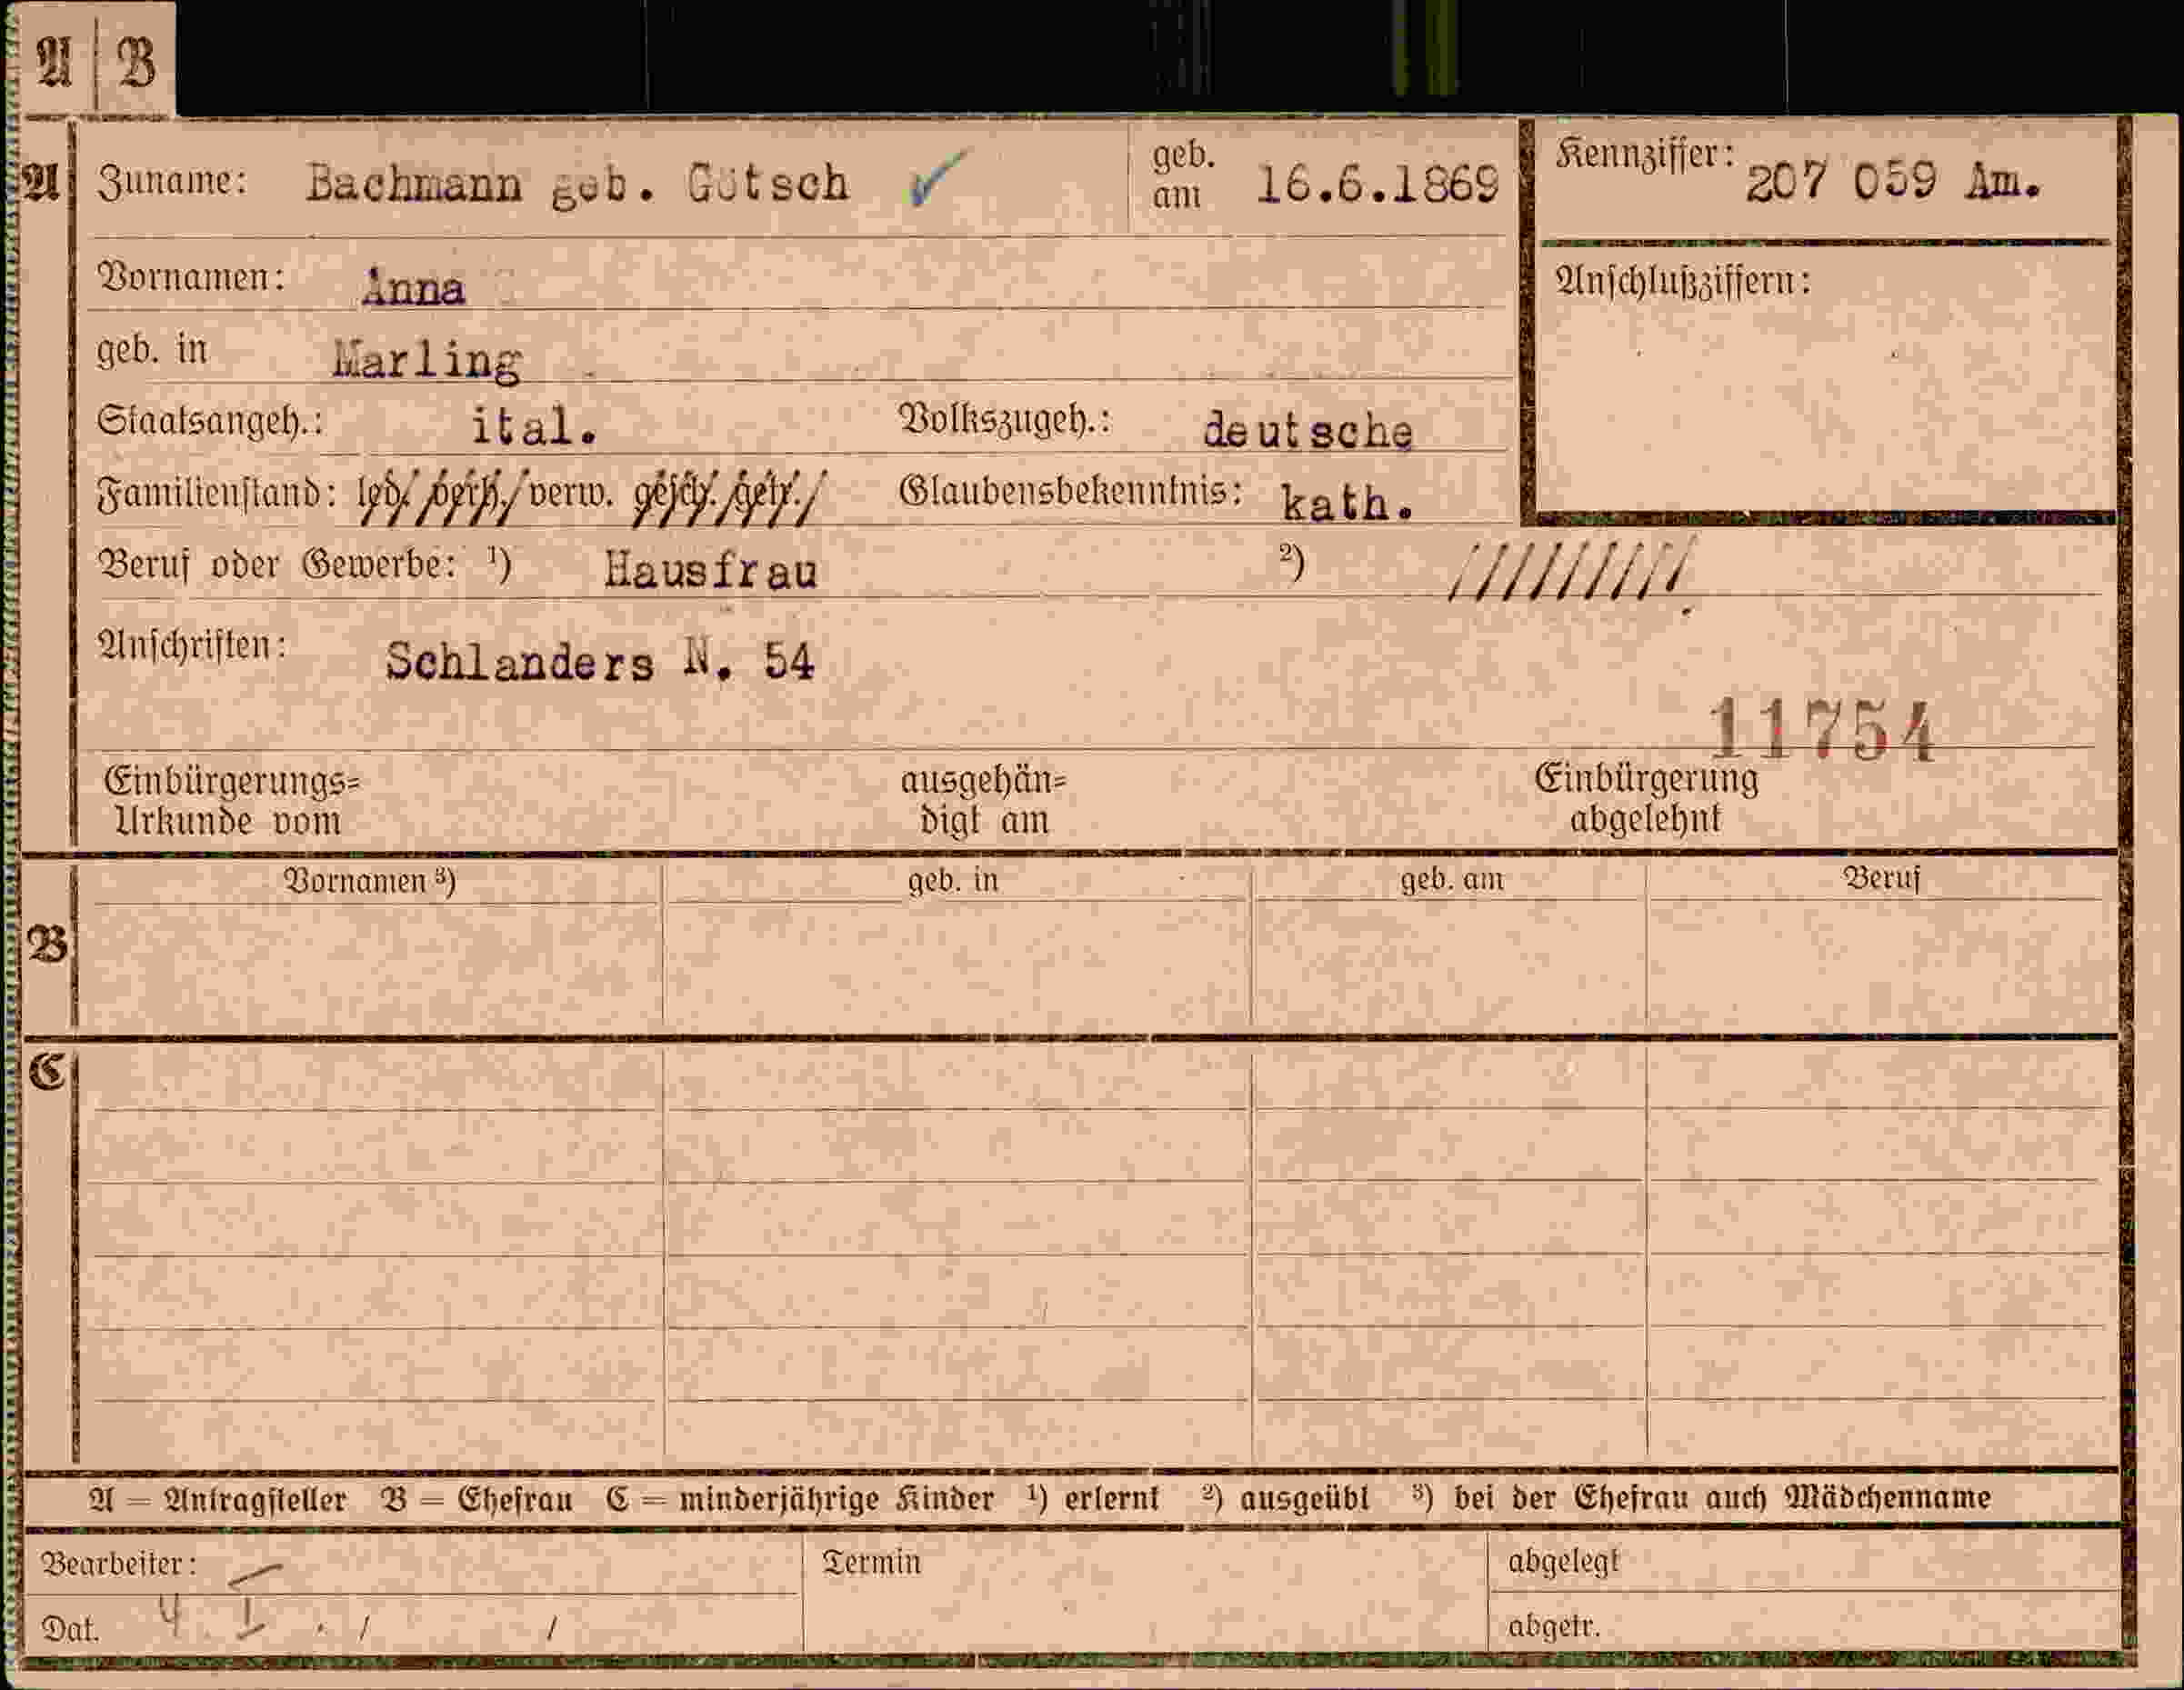 A | B
A Zuname: Bachmann geb. Götsch geb. am 16.6.1869 Kennziffer: 207 059 Am.
Vornamen: Anna Anschlußziffern:
geb. in Marling
Staatsangeh.: ital. Volkszugeh.: deutsche
Familienstand: led. verh. verw. gesch. getr. Glaubensbekenntnis: kath.
Beruf oder Gewerbe: ¹) Hausfrau ²) //////////
Anschriften: Schlanders N. 54
11754
Einbürgerungs=
Urkunde vom
ausgehän=
digt am
Einbürgerung
abgelehnt
Vornamen ³) geb. in geb. am Beruf
B
C
A = Antragsteller B = Ehefrau C = minderjährige Kinder ¹) erlernt ²) ausgeübt ³) bei der Ehefrau auch Mädchenname
Bearbeiter: Termin abgelegt
Dat. abgetr.